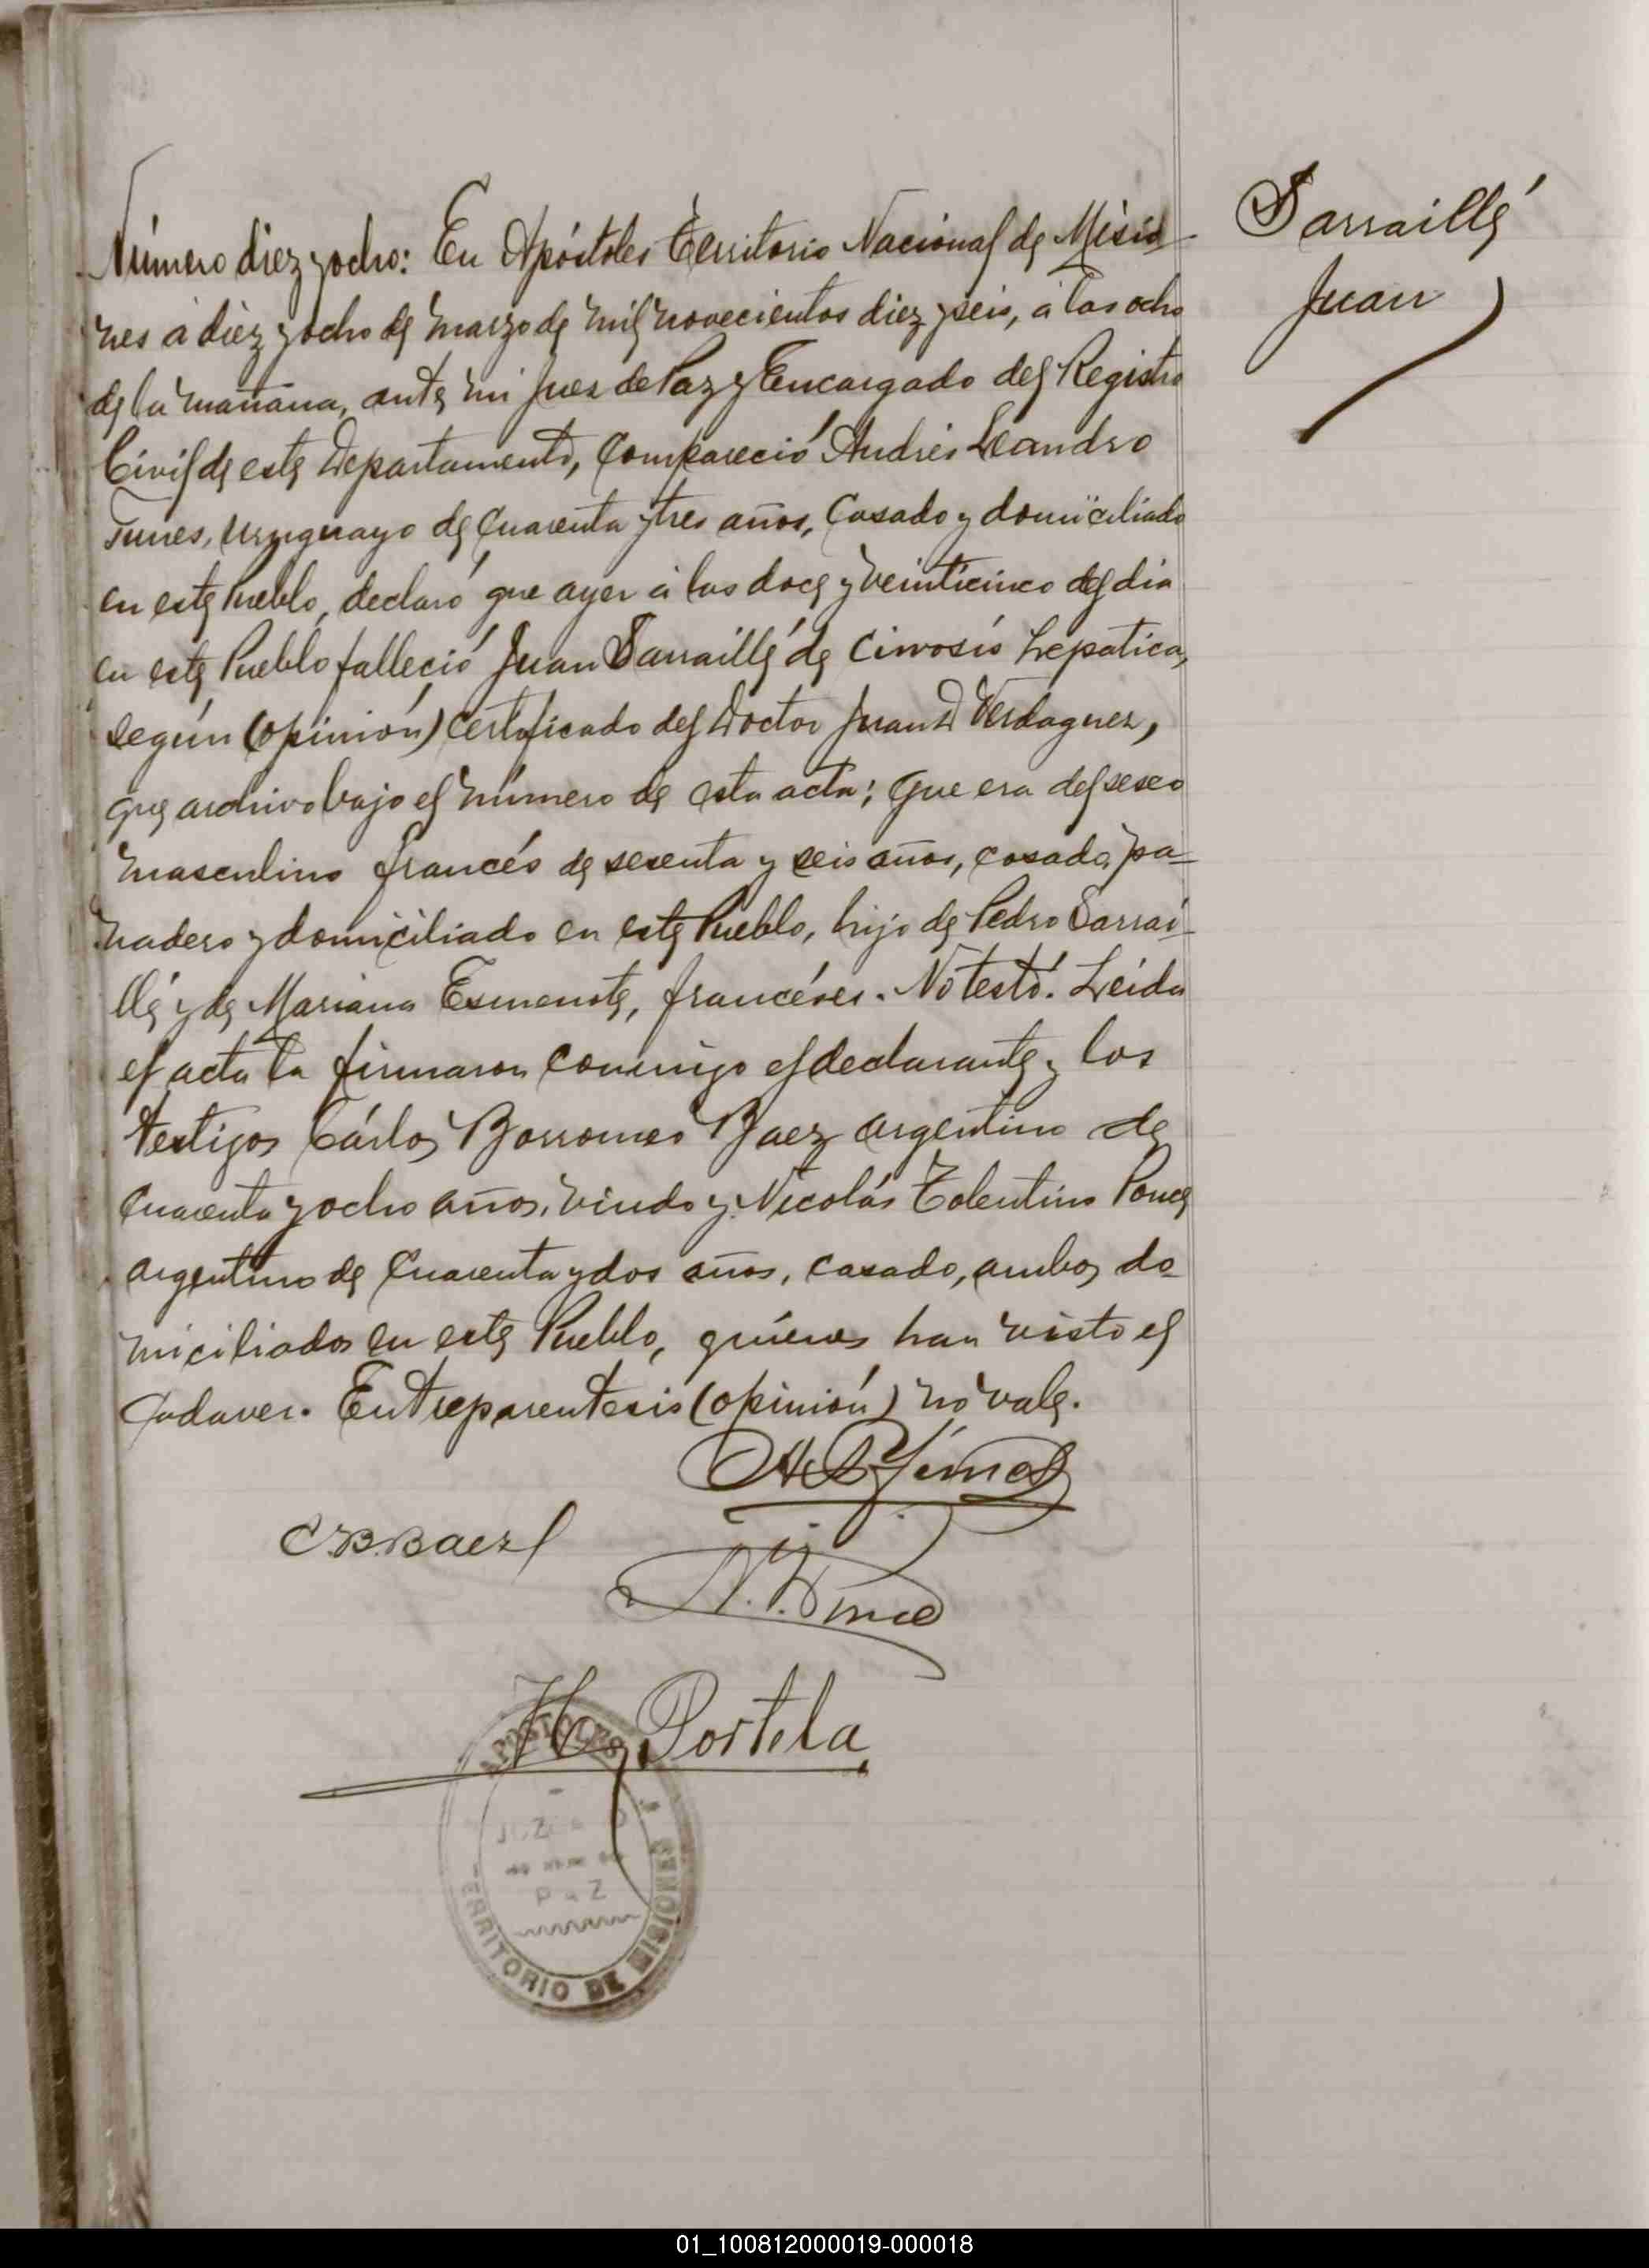 Sarraillé
Juan
Número diez y ocho: En Apóstoles Territorio Nacional de Misio-
nes á diez y ocho de Marzo de mil novecientos diez y seis, á las ocho
de la mañana, ante mi Juez de Paz y Encargado del Registro
Civil de este Departamento, compareció Andrés Leandro
uruguayo de cuarenta y tres años, casado y domiciliado
en este Pueblo, declaró que ayer á las doce y veinticinco del dia
en este Pueblo falleció Juan Sarraillé de cirrosis hepatica,
según (opinión) certificado del Doctor Juan D Verdaguer,
que archivo bajo el número de esta acta; que era del sexo
masculino francés de sesenta y seis años, casado, pa-
nadero y domiciliado en este Pueblo, hijo de Pedro Sarrai-
llé y de Mariana francéses. No testó. Leida
el acta la firmaron conmigo el declarante y los
testigos Cárlos Borromeo Baez argentino de
cuarenta y ocho años, viudo y Nicolás Tolentino Ponce
argentino de cuarenta y dos años, casado, ambos do-
miciliados en este Pueblo, quienes han visto el
cadaver. Entreparentesis (opinión) no vale.
C.B.Baez
N.T.Ponce
Portela
APOSTOLES
JUZGADO
DE
PAZ
TERRITORIO DE MISIONES
01_100812000019-000018